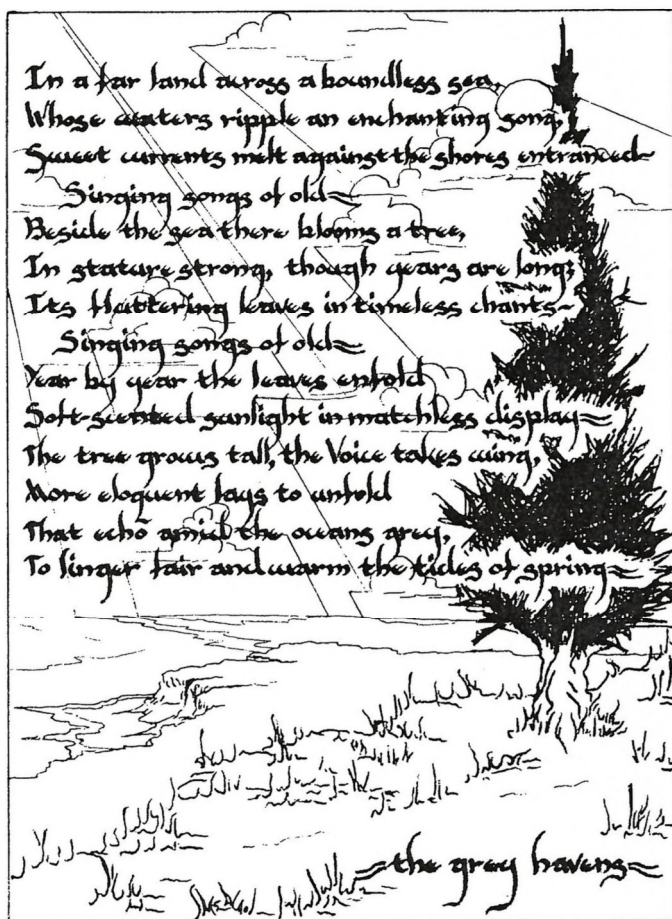 In a far land across a boundless sea,
Whose waters ripple an enchanting song,
Sweet currents melt against the shores entranced~
Singing songs of old~
Beside the sea there blooms a tree,
In stature strong, though years are long;
Its flattering leaves in timeless chants~
Singing songs of old~
Year by year the leaves enfold
Soft-scented sunlight in matchless display~
The tree grows tall, the Voice takes wing,
More eloquent lays to unfold
That echo amid the oceans grey,
To linger fair and warm the tides of spring~
~the grey havens~